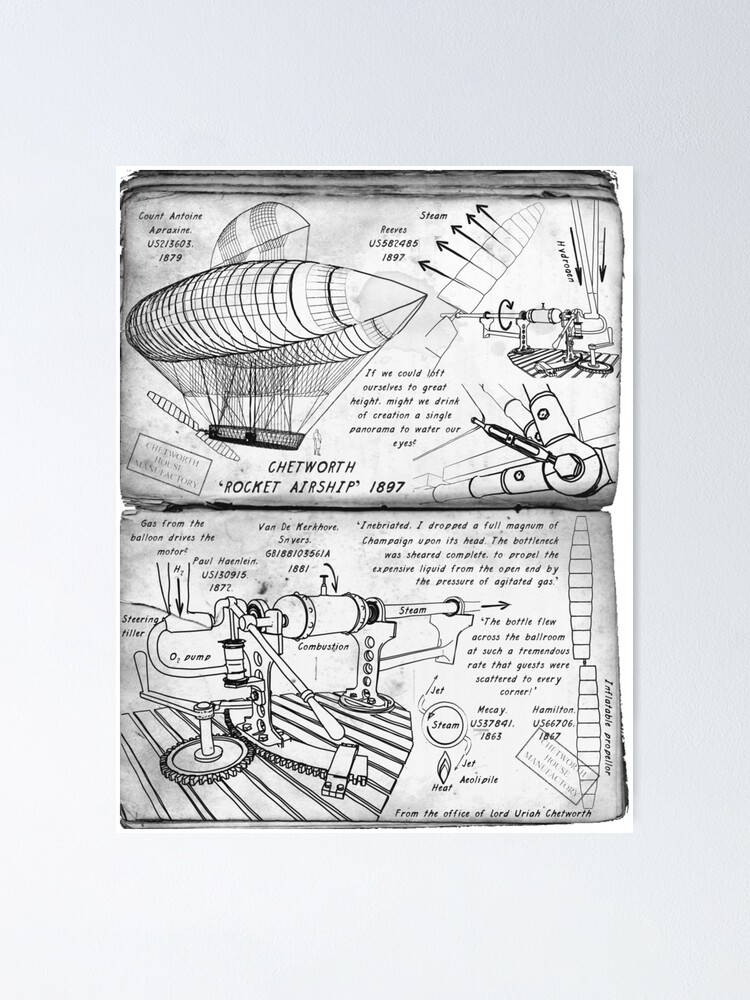 Count Antoine
Apraxine.
US213603.
1879
Steam
Reeves
US582485
1897
Hydrogen
If we could loft
ourselves to great
height. might we drink
of creation a single
panorama to water our
eyes?
CHETWORTH
HOUSE
MANUFACTORY
CHETWORTH
'ROCKET AIRSHIP' 1897
Gas from the
balloon drives the
motor?
H2
Paul Haenlein.
US130915.
1872.
Van De Kerkhove.
Snyers.
GB188103561A
1881
'Inebriated. I dropped a full magnum of
Champaign upon its head. The bottleneck
was sheared complete. to propel the
expensive liquid from the open end by
the pressure of agitated gas.'
Steering
tiller
O2 pump
Combustion
Steam
'The bottle flew
across the ballroom
at such a tremendous
rate that guests were
scattered to every
corner!'
Jet
Steam
Jet
Heat
Aeolipile
Mecay.
US37841.
1863
Hamilton.
US66706.
1867
Inflatable propellor
CHETWORTH
HOUSE
MANUFACTORY
From the office of Lord Uriah Chetworth